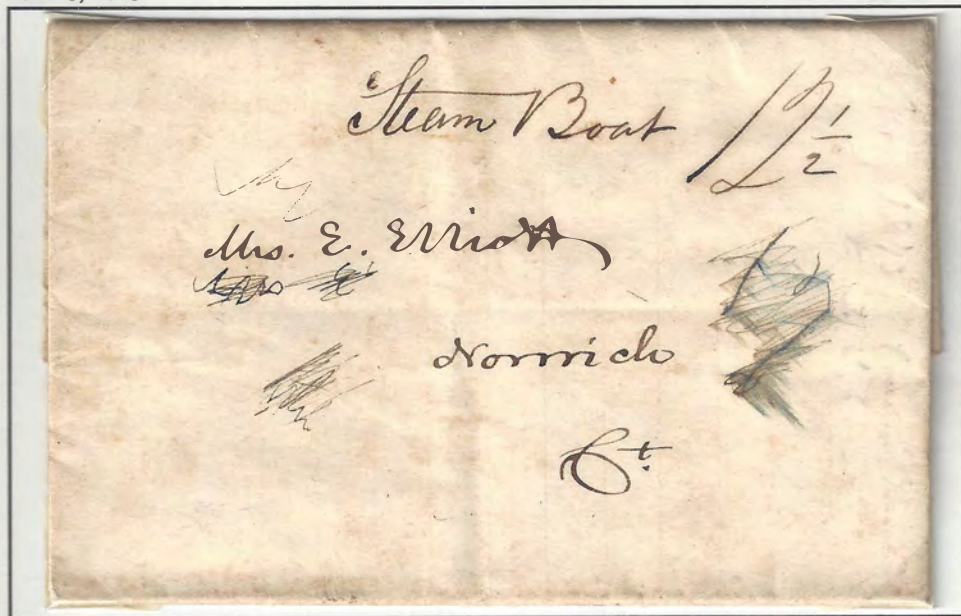 Steam Boat 12 1/2
Mrs. E. Elliott
Norwich
Ct.